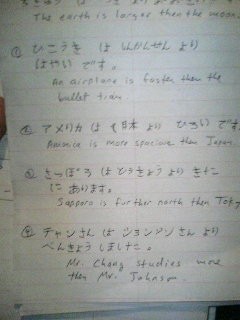 The earth is larger then the moon.
① ひこうき は しんかんせん より
はやい です。
An airplane is faster then the
bullet train.
② アメリカ は 日本 より ひろい です
America is more spacious then Japan.
③ さっぽろ は とうきょう より きた
に あります。
Sapporo is further north then Tok
④ チャンさん は ジョンソン さん より
べんきょう しました。
Mr. Chang studies more
then Mr. Johnso